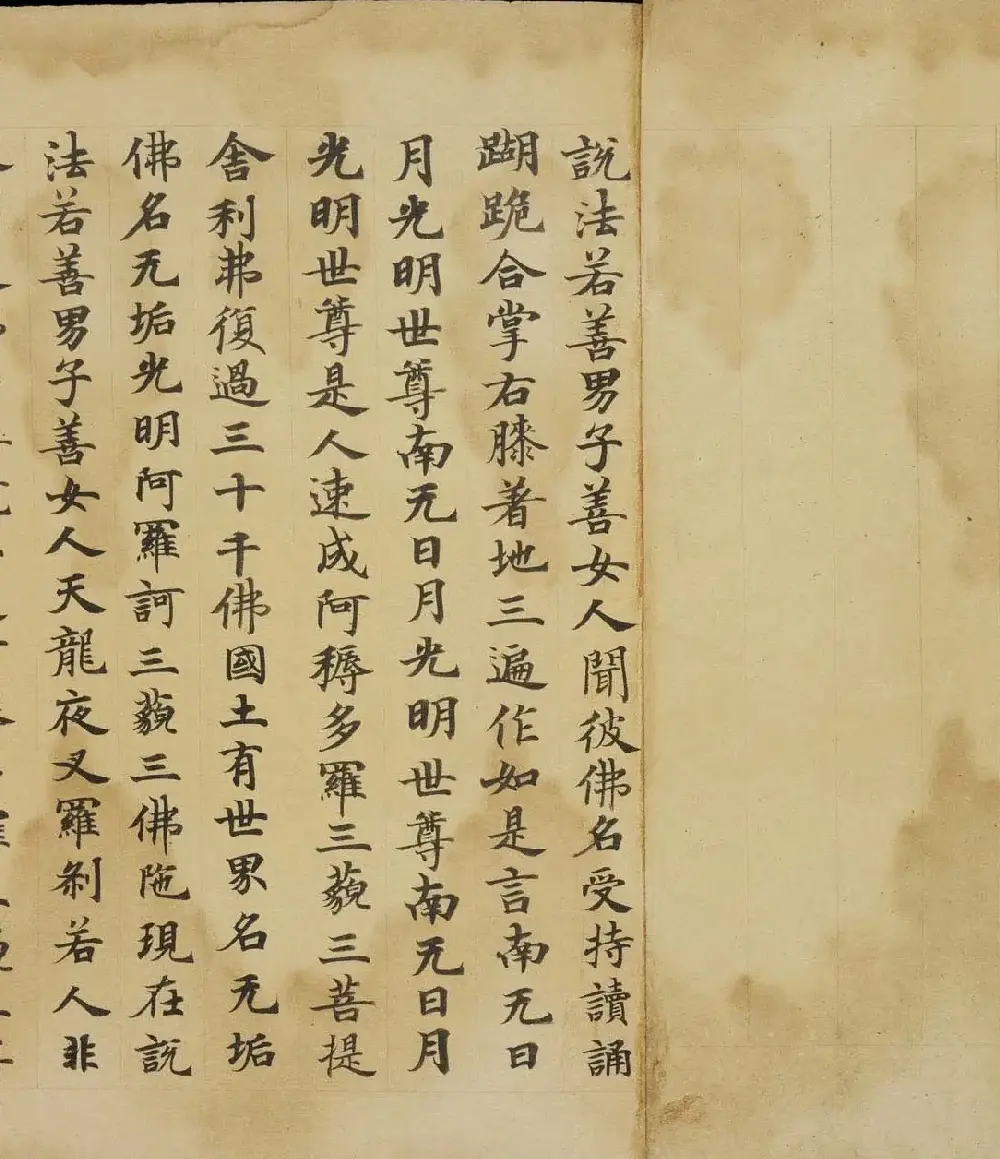 說法若善男子善女人聞彼佛名受持讀誦
蹦跪合掌右膝著地三遍作如是言南无日
月光明世尊南无日月光明世尊南无日月
光明世尊是人速成阿耨多羅三藐三菩提
舍利弗復過三十千佛國土有世界名无垢
佛名无垢光明阿羅訶三藐三佛陁現在說
法若善男子善女人天龍夜叉羅剎若人非